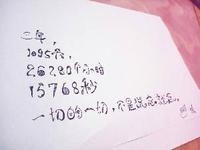 三年，
1095天，
26280个小时
15768秒
一切的一切，不是说忘就忘。